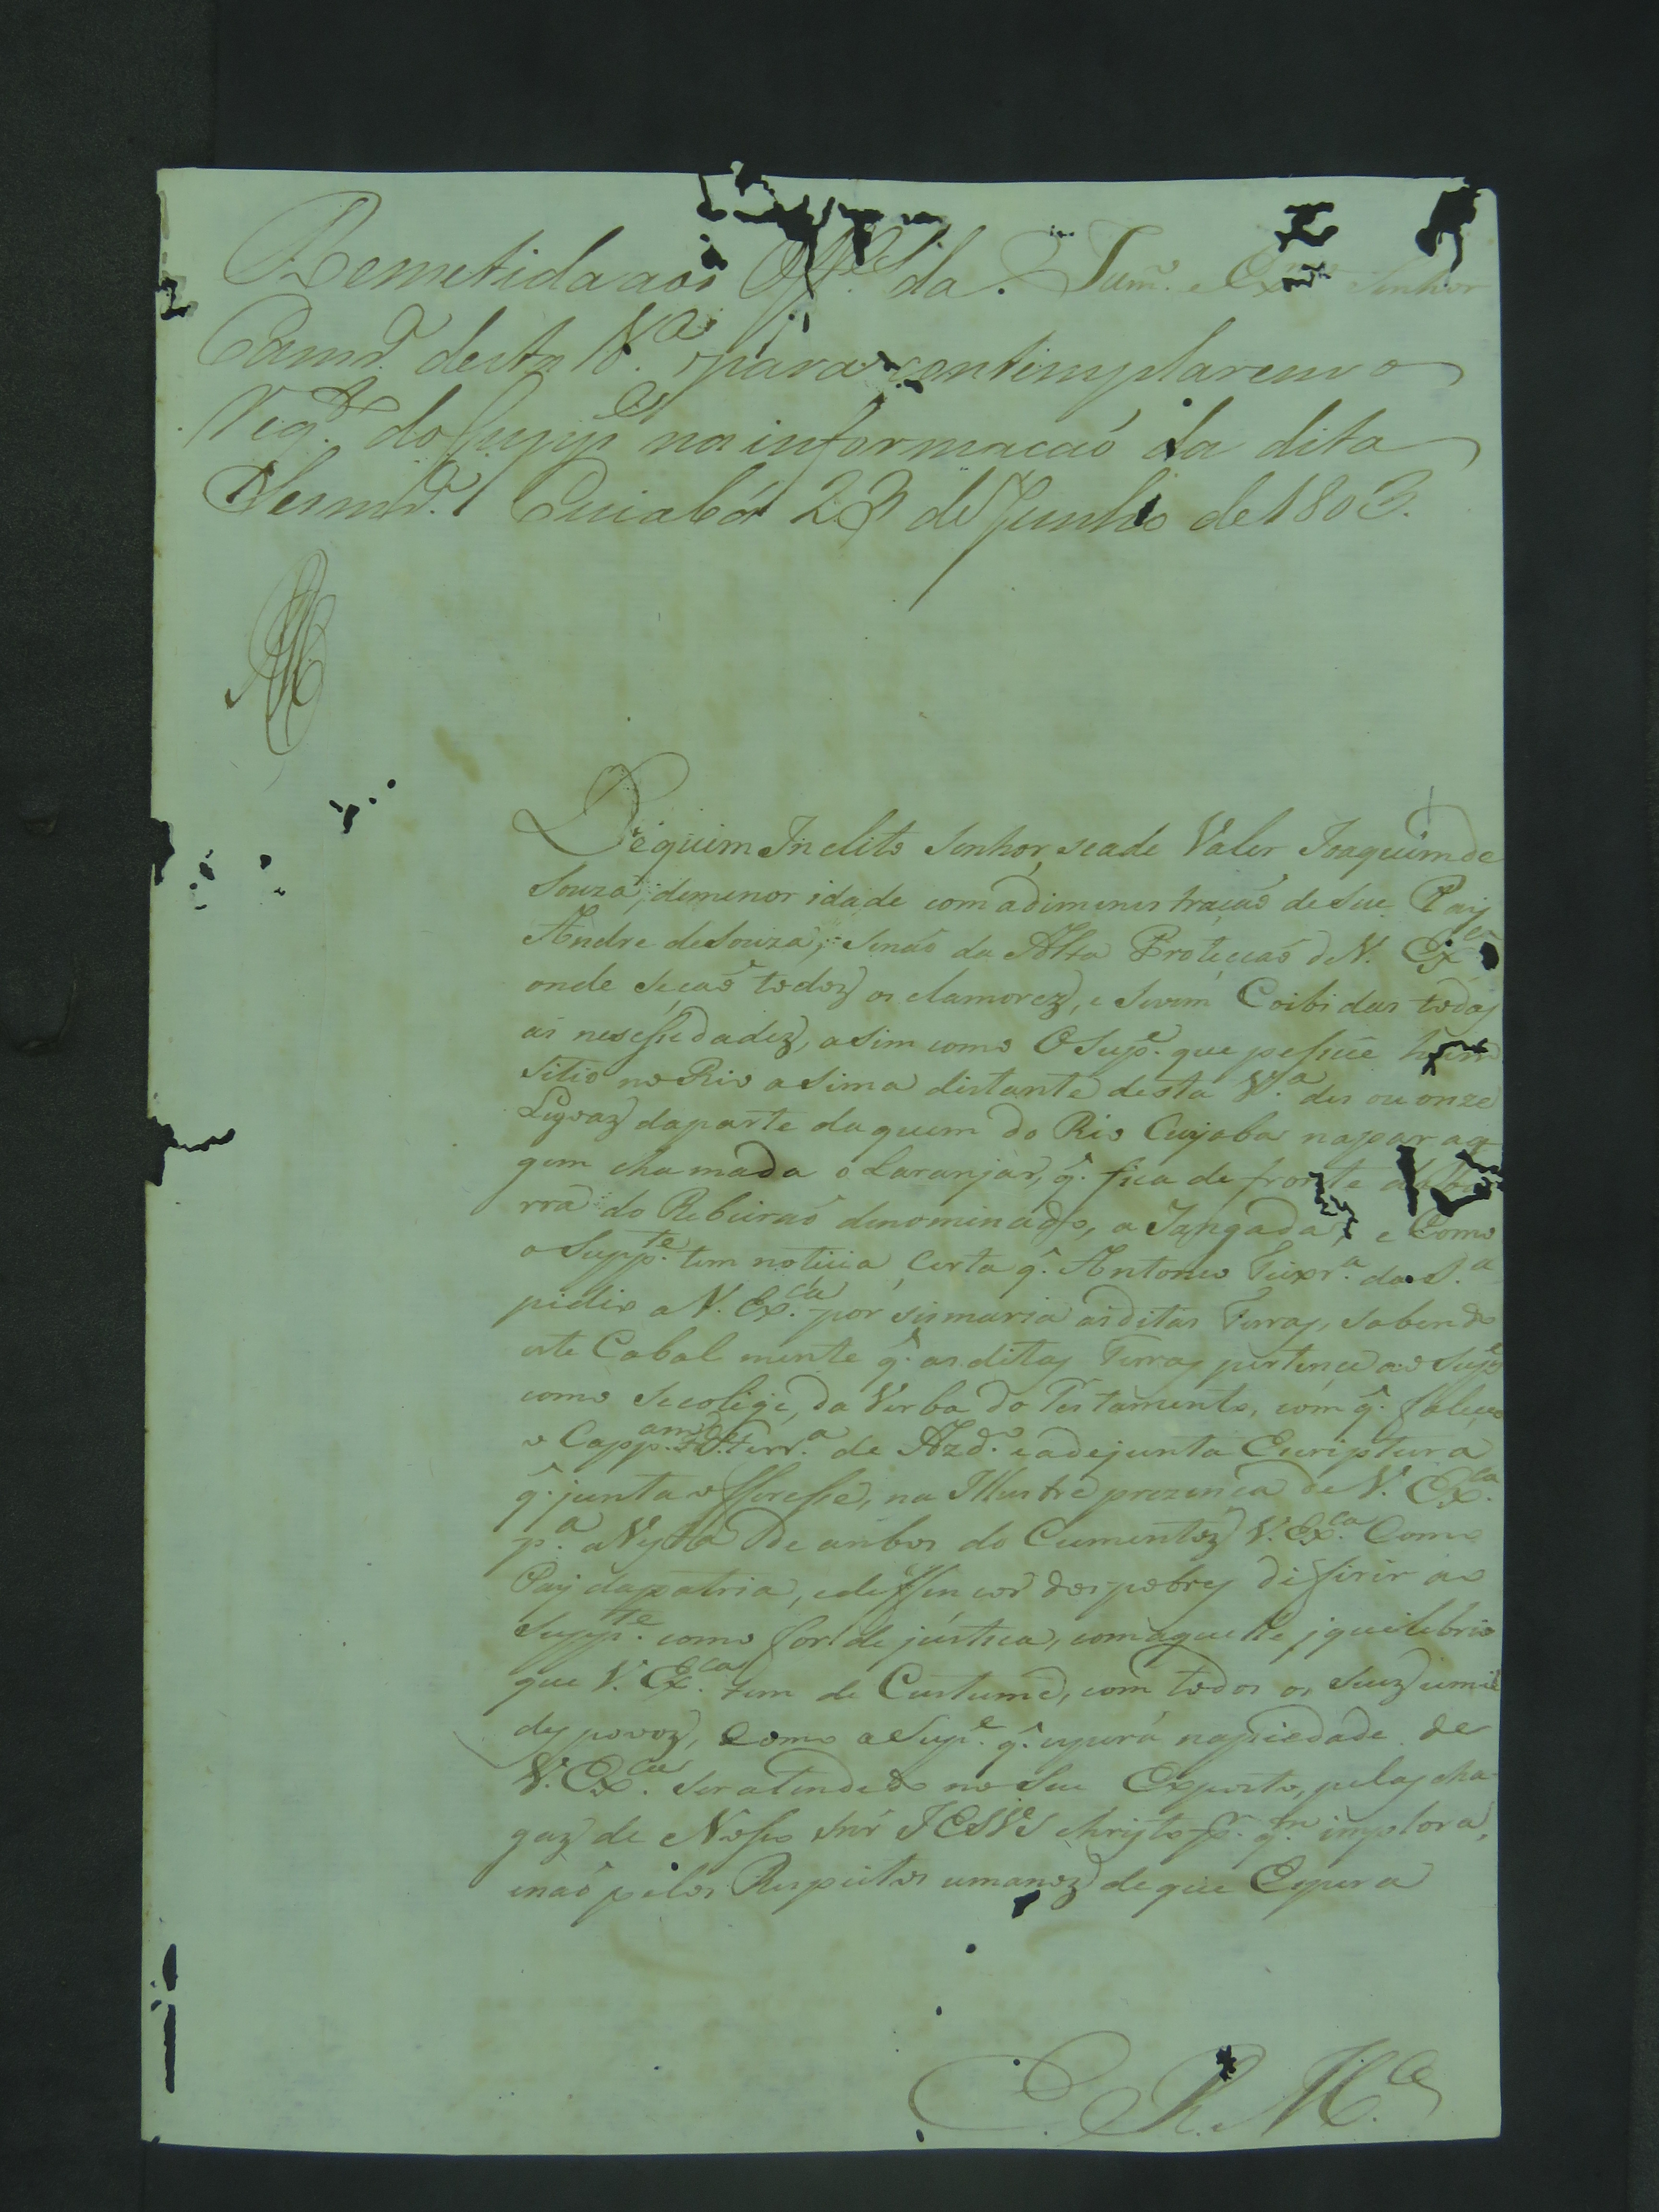 Remetida aos Off.es da Ill.mo e Ex.mo Senhor
Camr.ª desta V.ª para contimplarem o
Neg.º do Supp.e na informacaó da dita
Sesmr.ª Cuiabá 23 de Junho de 1803.
De quim Inclito Senhor, seade Valer Joaquim de
Souza, demenor idade com adimenistracaó de Seu Pay
Andre de Souza, senaó da Alta Protecaó de V. Ex.cia
onde secaó todoz os clamorez, e Serem Coibidas todas
as nesessedadez, asim como O Sup.e que pessue hum
sitio no Rio asima distante desta V.ª des ou onze
Legoaz daparte daquem do Rio Cuyaba naparag
gem chamada o Laranjar, q̂. fica de fronte a ba
rra do Ribeiraó denominado, a Jangada, e Como
o Supp.te tem noticia Certa q̂. Antonio Teixr.ª da S.ª
pidio a V. Ex.cia por sismaria as ditas Terras, sabendo
este Cabal mente q̂. as ditas Terras pertence ao Sup.e
como secolige, da Verba do Testamento, com q̂. faleceo
o Capp.am Ferr.ª de Azd.º eadejunta Escriptura
q̂. junta offeresse, na Illustre prezencia de V. Ex.ca
p.ª aVysta de anbos do Cumentoz V. Ex.ca Como
Pay dapatria, edeffencor dos pobres differir ao
Supp.te como for de justica, comaquelle iquilibrio
que V. Ex.ca tem de Custume, com todos os Seuz umil
des povoz, Como aSup.e q̂. espera napiedade de
V. Ex.cia ser atendido no Seu Exposto, pelas cha
gaz de Nosso Snr̃ JESVS Christo p.r q.m implora,
enaó pelos Respeitos umanoz de que Espera
E. R. M.ce